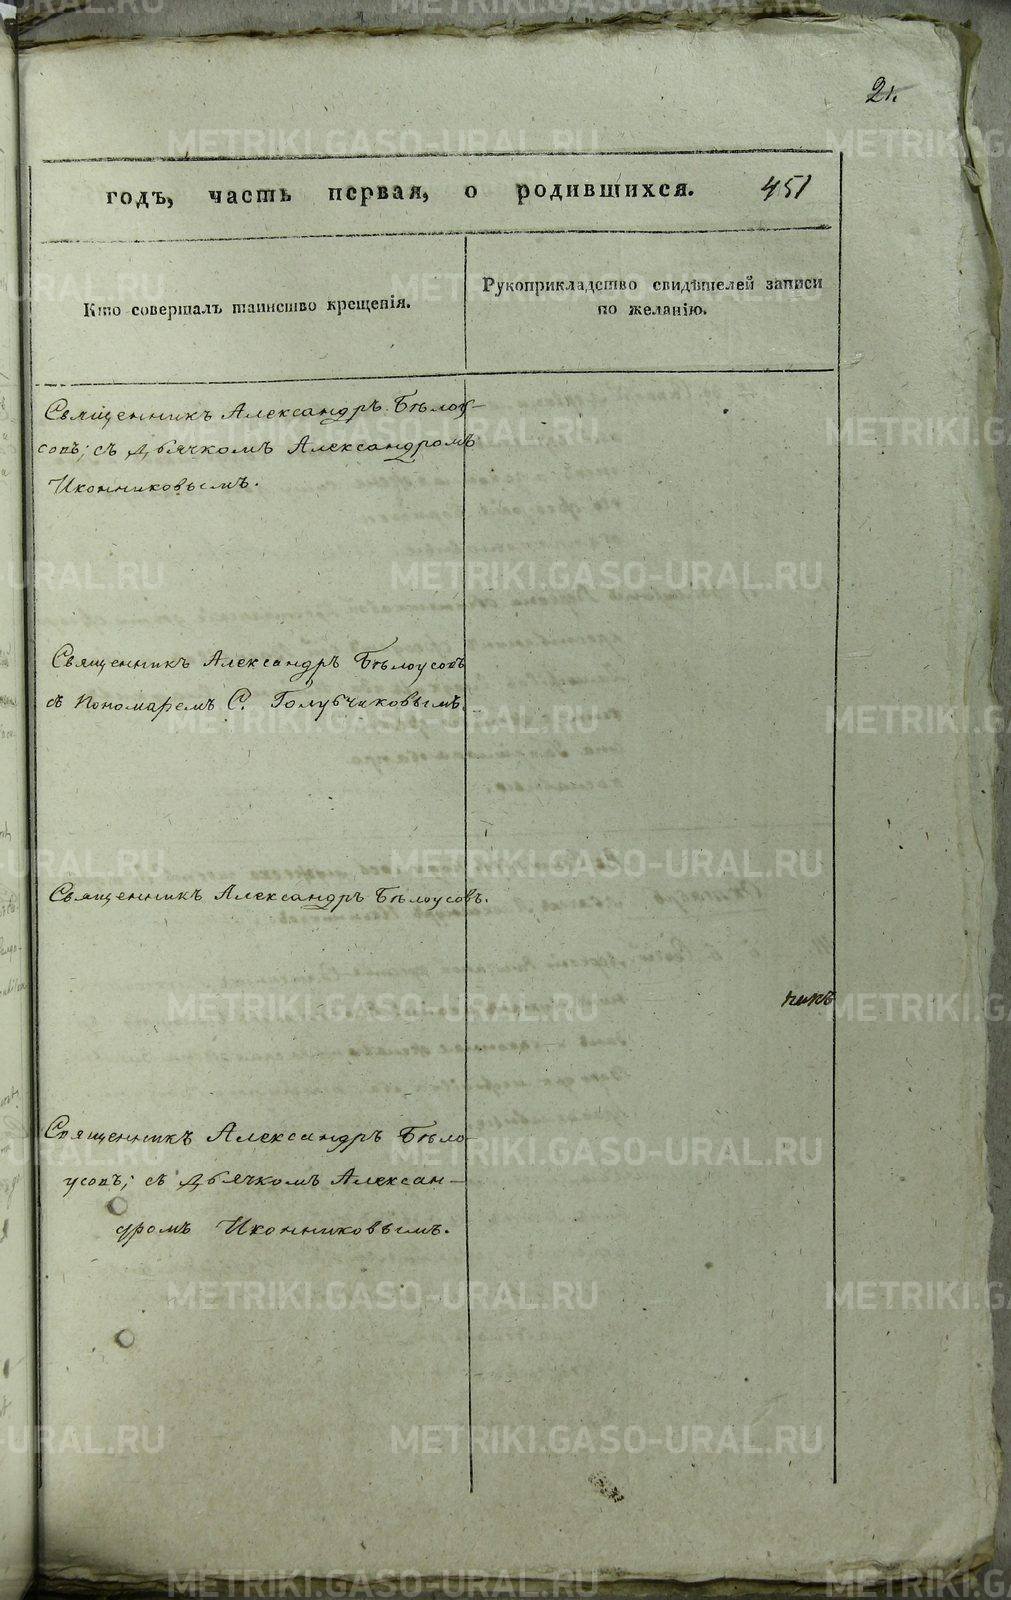 21.
годъ, часть первая, о родившихся. 451
Кто совершалъ таинство крещенія.
Рукоприкладство свидѣтелей записи
по желанію.
Священникъ Александръ Бѣлоу-
совъ; съ дьячкомъ Александромъ
Иконниковымъ.
Священникъ Александръ Бѣлоусовъ
съ пономаремъ С. Голубчиковымъ.
Священникъ Александръ Бѣлоусовъ.
никъ
Священникъ Александръ Бѣло-
усовъ; съ дьячкомъ Алексан-
дромъ Иконниковымъ.
METRIKI.GASO-URAL.RU